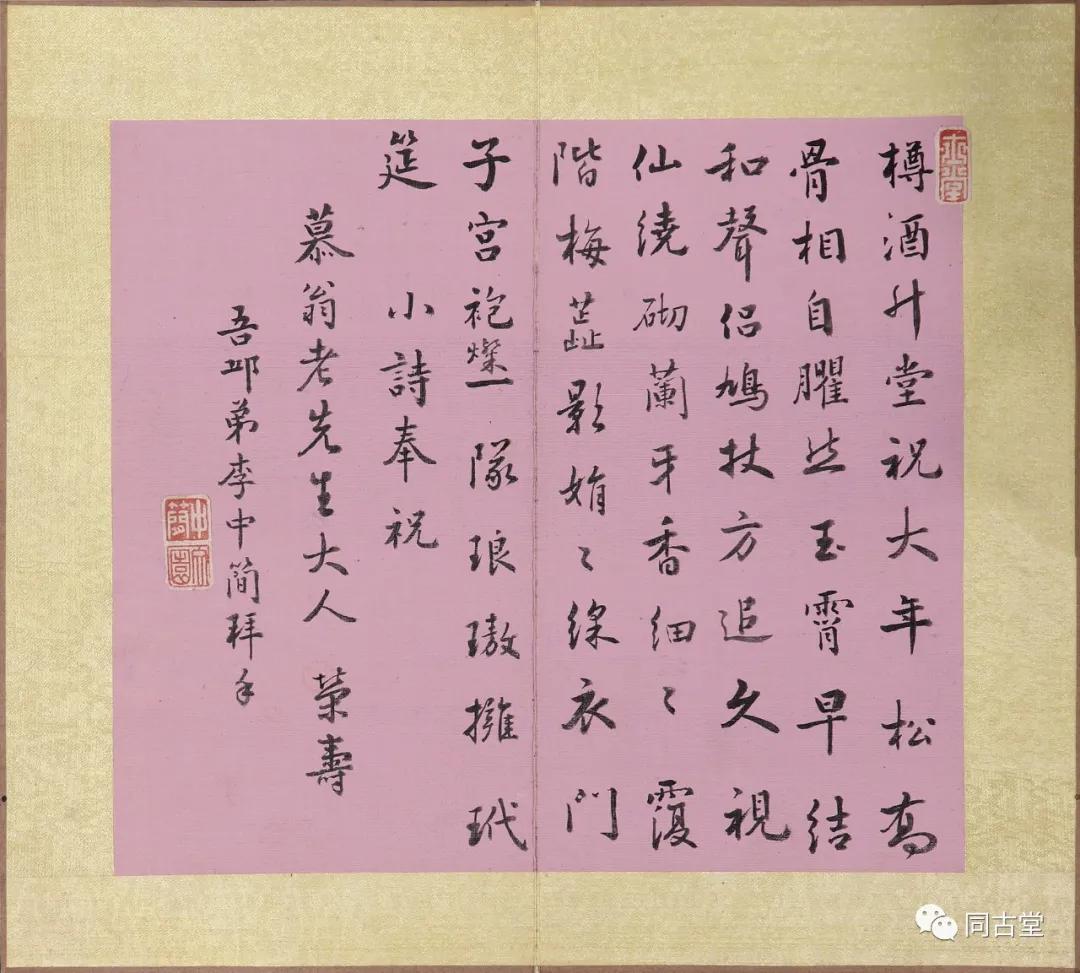 樽酒升堂祝大年松喬
骨相自臞然玉霄早結
和聲侶鳩杖方追久視
仙繞砌蘭牙香細〻霞
階梅蕋影娟〻綵衣門
子宮袍燦一隊琅璈擁玳
筵 小詩奉祝
慕翁老先生大人 榮壽
吾邱弟李中簡拜手
同古堂